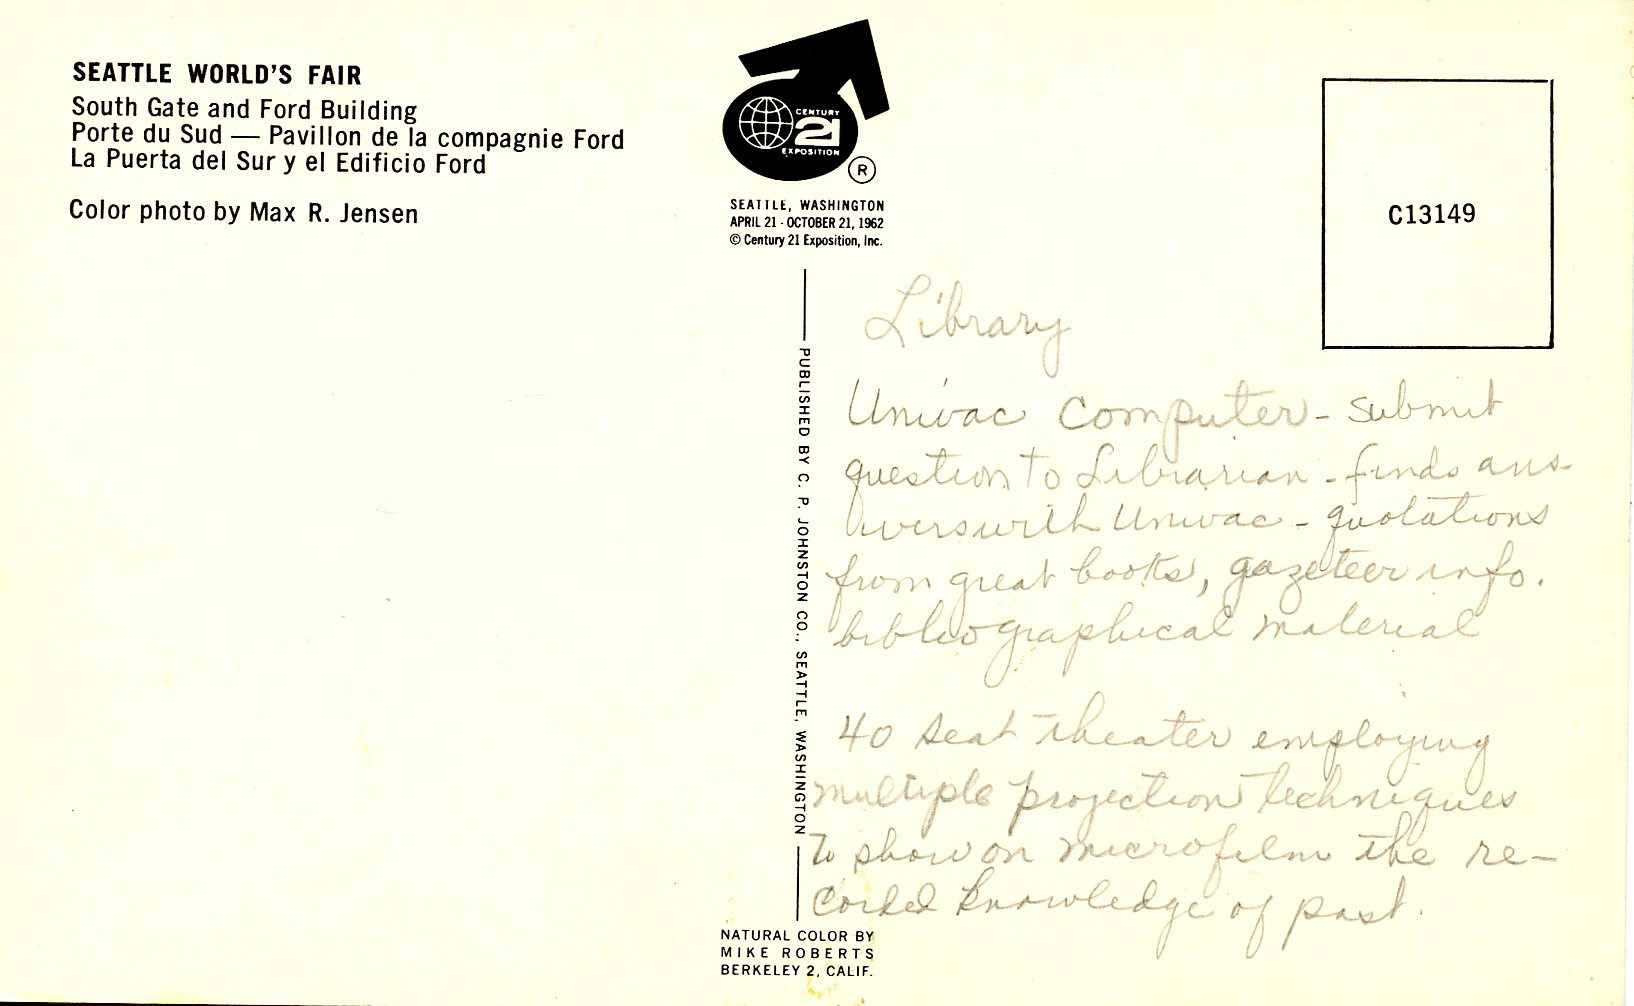 SEATTLE WORLD'S FAIR
South Gate and Ford Building
Porte du Sud — Pavillon de la compagnie Ford
La Puerta del Sur y el Edificio Ford
Color photo by Max R. Jensen
CENTURY
21
EXPOSITION
®
SEATTLE, WASHINGTON
APRIL 21 - OCTOBER 21, 1962
© Century 21 Exposition, Inc.
PUBLISHED BY C. P. JOHNSTON CO., SEATTLE, WASHINGTON
NATURAL COLOR BY
MIKE ROBERTS
BERKELEY 2, CALIF.
C13149
Library
Univac Computer - submit
question to Librarian - finds ans-
wers with Univac - quotations
from great books, gazeteer info.
bibliographical material
40 seat theater employing
multiple projection techniques
to show on microfilm the re-
corded knowledge of past.